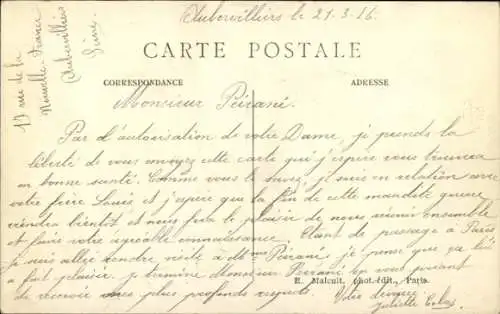 Aubervilliers le 21-3-16
19 rue de la
Nouvelle-France
Aubervilliers
Seine
CARTE POSTALE
CORRESPONDANCE
ADRESSE
Monsieur Peirani.
Par l'autorisation de votre Dame, je prends la
liberté de vous envoyer cette carte qui j'espère vous trouvera
en bonne santé. Comme vous le savez, je suis en relation avec
votre frère Louis et j'espère que la fin de cette maudite guerre
viendra bientôt et nous fera le plaisir de nous réunir ensemble
et faire votre agréable connaissance. Etant de passage à Paris
je suis allée rendre visite à Mme Peirani, je pense que ça lui
a fait plaisir. Je termine Monsieur Peirani en vous priant
de recevoir mes plus profonds respects.
E. Malcuit, phot.-édit., Paris.
Votre dévouée
Juliette